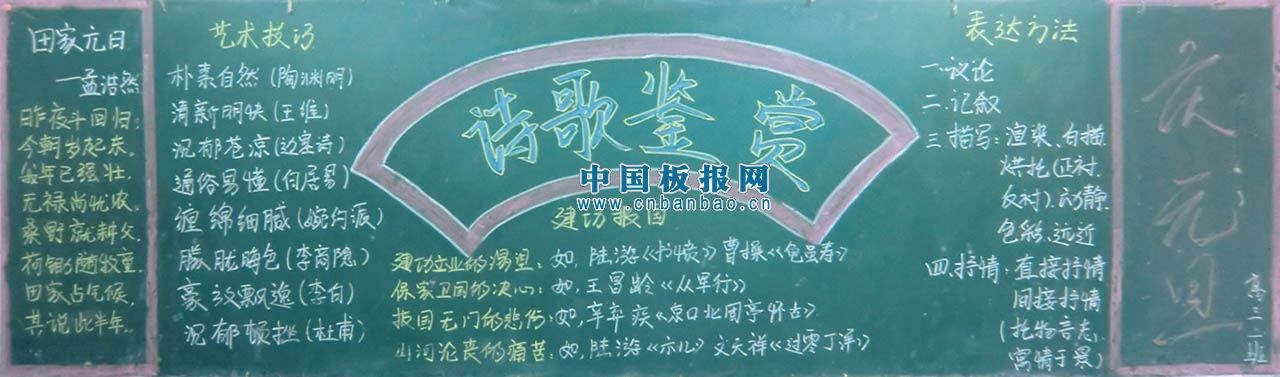 田家元日
—孟浩然
昨夜斗回归,
今朝岁起东。
每年已强壮,
无禄尚忧农。
桑野就耕父,
荷锄随牧童。
田家占气候,
共说此年丰。
艺术技巧
朴素自然(陶渊明)
清新明快(王维)
沉郁苍凉(边塞诗)
通俗易懂(白居易)
缠绵细腻(婉约派)
朦胧晦色(李商隐)
豪放飘逸(李白)
沉郁顿挫(杜甫)
诗歌鉴赏
中国板报网
www.cnbanbao.cn
建功报国
建功立业的渴望:如,陆游《书愤》曹操《龟虽寿》
保家卫国的决心:如,王昌龄《从军行》
报国无门的悲伤:如,辛弃疾《京口北固亭怀古》
山河沦丧的痛苦:如,陆游《示儿》文天祥《过零丁洋》
表达方法
一.议论
二.记叙
三.描写:渲染、白描
烘托(正衬、
反衬)、动静、
色彩、远近
四.抒情:直接抒情
间接抒情
(托物言志、
寓情于景)
庆元旦
高三二班